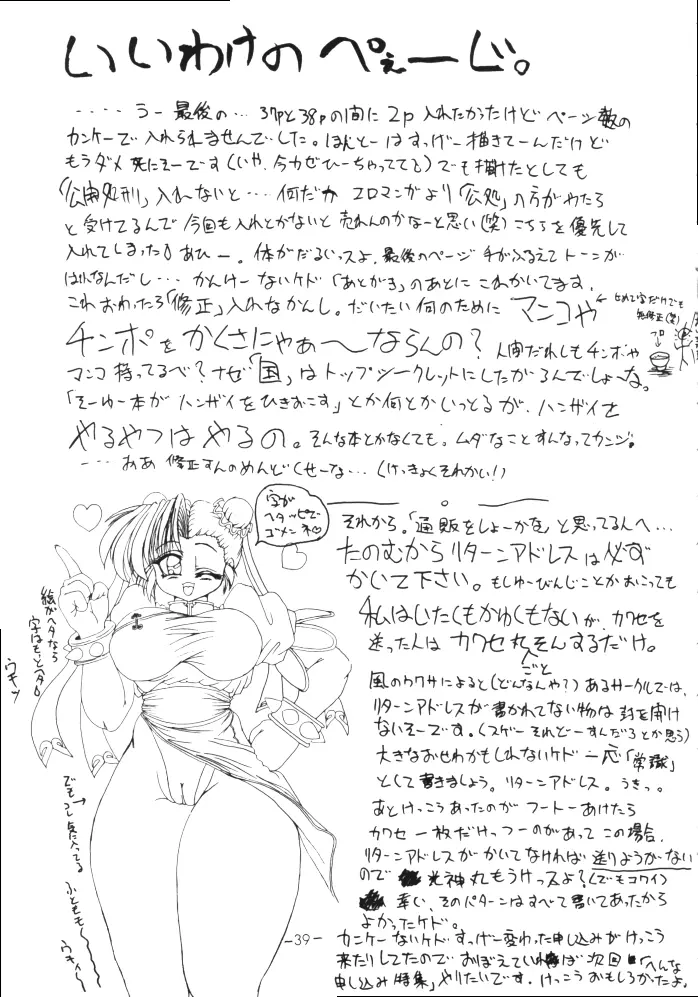 いいわけの ぺぇーじ。
‥‥ うー 最後の… 37pと38pの間に 2p 入れたかったけど ページ数の
カンケーで 入れられませんでした。ほんとーはすっげー描きてーんだけど
もうダメ 死にそーです(いや、今カゼひーちゃってて) でも描けたとしても
「公開処刑」入れーないと… 何だか エロマンガより「公処」の方がやたら
と受けてるんで 今回も入れとかないと 売れんのかなーと思い(笑) こちらを優先して
入れてしまった あひー。体がだるいっスよ。最後のページ 手がふるえてトーンが
はれなんだし… かんけーないケド「あとがき」のあとに これかいてます。
これおわったら「修正」入れなかんし。だいたい何のために マンコや
チンポを かくさにゃぁ〜ならんの? 人間だれしもチンポや
マンコ 持ってるべ? ナゼ「国」はトップシークレットにしたがるんでしょーな。
「そーゆー本が ハンザイをひきおこす」とか何とかいっとるが、ハンザイを
やるやつは やるの。そんな本とかなくても。ムダなことすんなってカンジ。
‥‥ ああ 修正すんのめんどくせーな… (けっきょくそれかい!)
字が
ヘタッピで
ゴメンネ
絵がヘタなら
字はもっとヘタ
ウキッ
でもコレ気に入ってる
ふともも
ウキィー
それから。「通販をしょーかな」と思ってる人へ…
たのむから リターンアドレスは必ず
かいて下さい。もしゆーびんじことかおこっても
私はいたくもかゆくもないが、カワセを
送った人は カワセ丸ごとそんするだけ。
風のウワサによると(どんなんや?) あるサークルでは、
リターンアドレスが書かれてない物は封を開け
ないそーです。(スゲー それどーすんだろとか思う)
大きなおせわかもしれないケド 一応「常識」
として書きましょう。リターンアドレス。うきっ。
あとけっこうあったのが フートーあけたら
カワセ 一枚だけっつーのがあって この場合、
リターンアドレスがかいてなければ 送りようがない
ので 光神丸もうけっスよ?(でもコワイ)
幸い、そのパターンはすべて書いてあったから
よかったケド。
カンケーないケド すっげー変わった申し込みがけっこう
来たりしてたので おぼえていれば 次回「へんな
申し込み特集」やりたいです。けっこうおもしろかったよ。
-39-